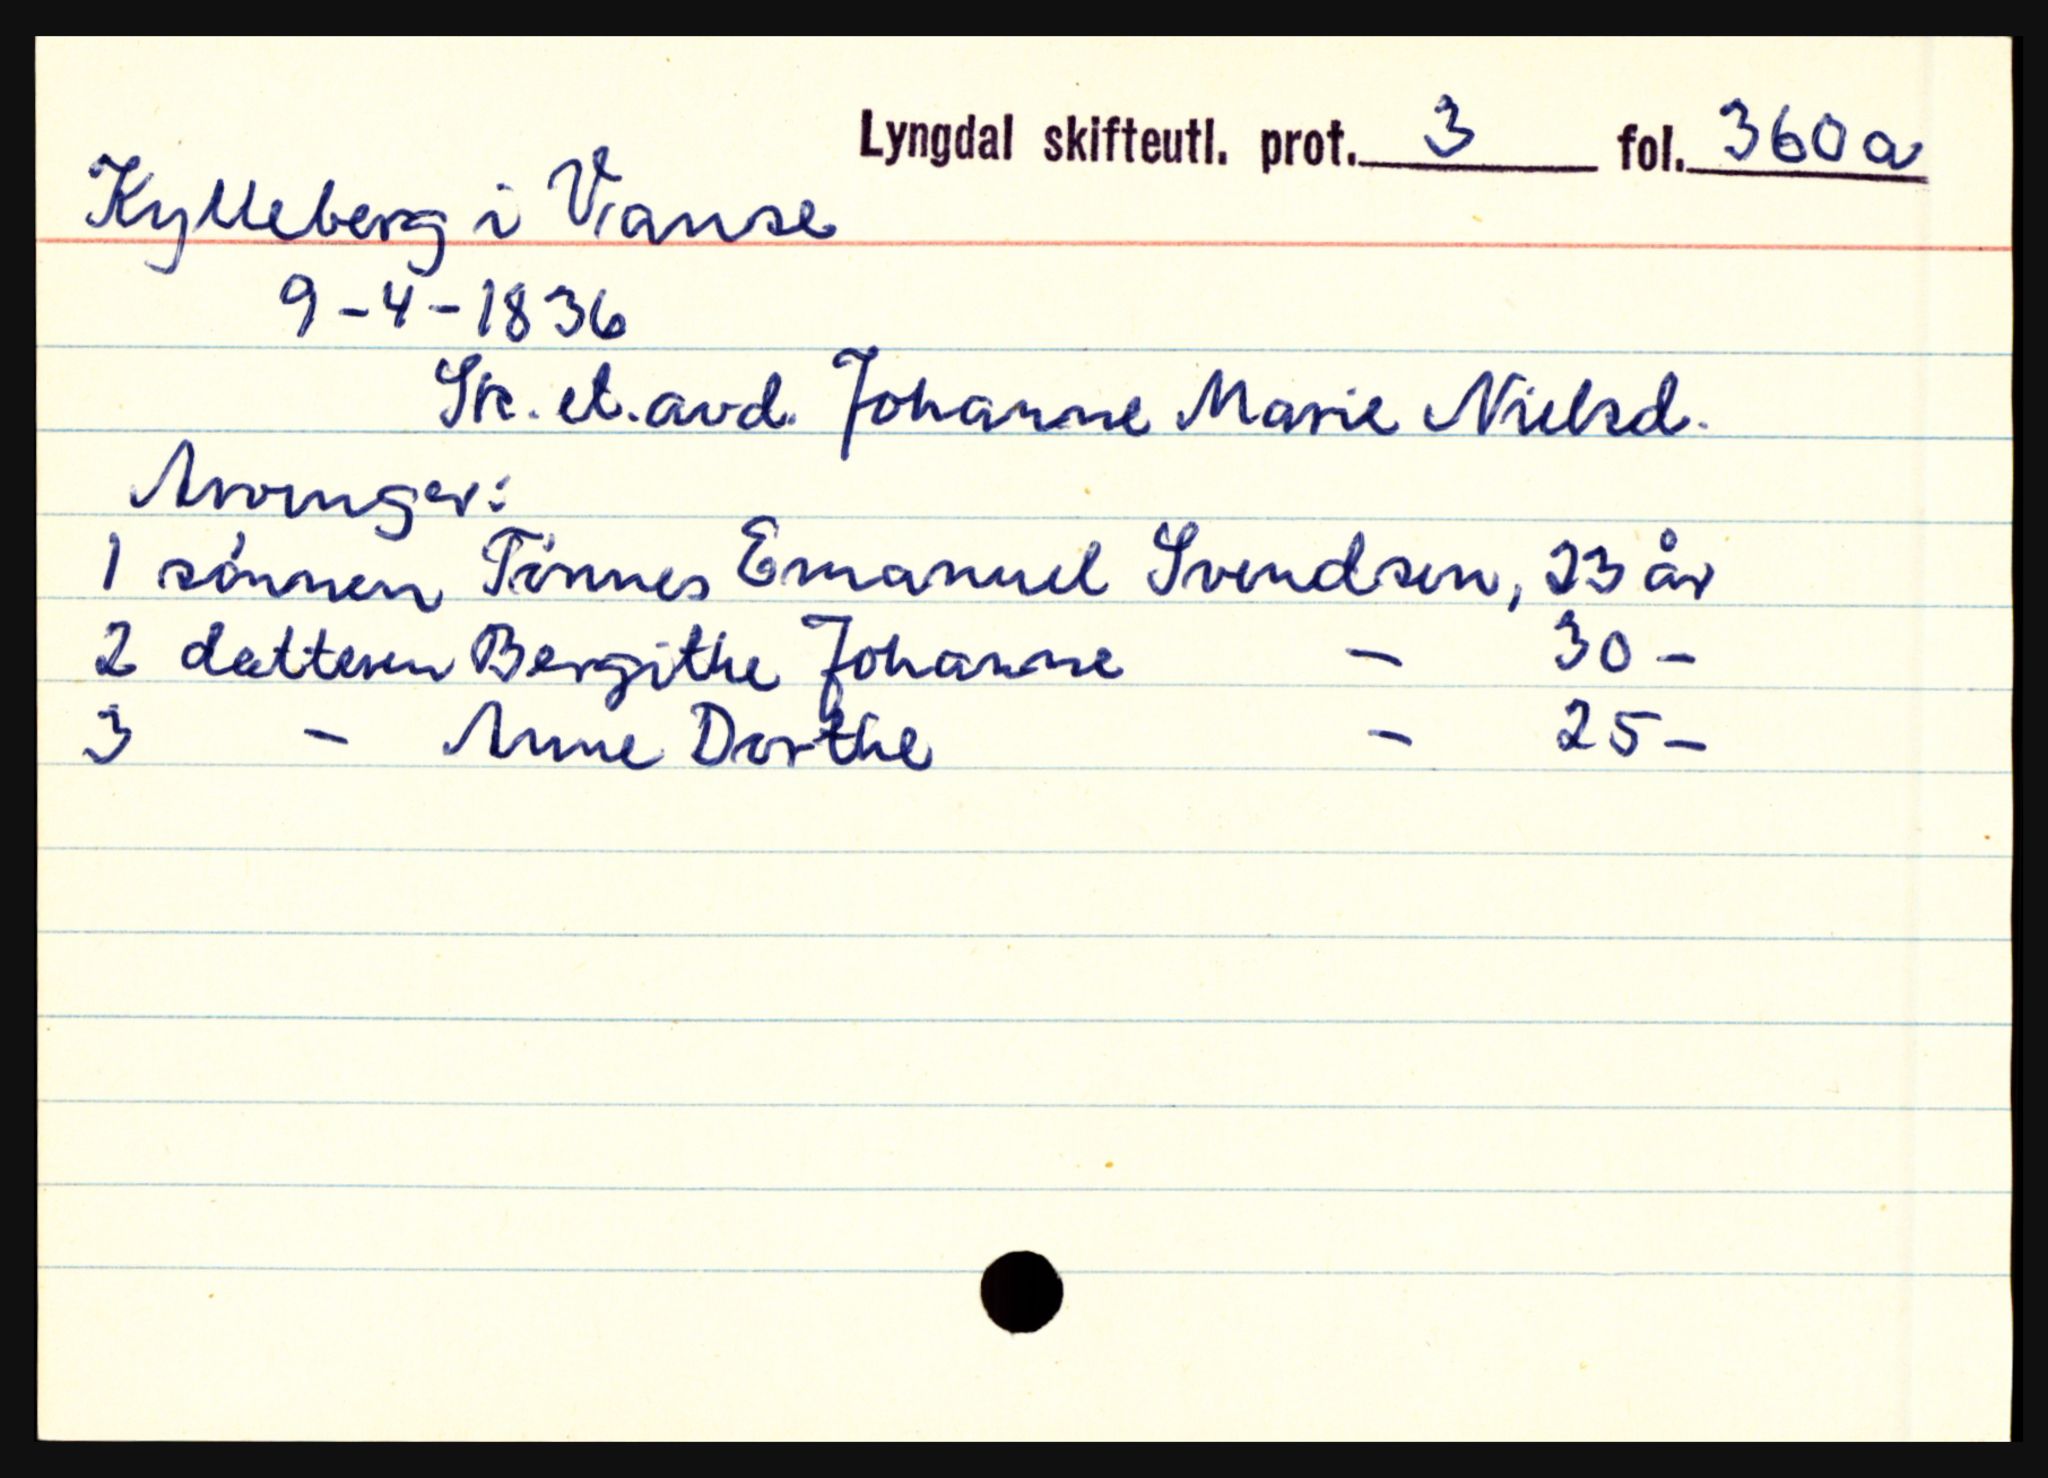 Lyngdal skifteutl. prot. 3 fol. 360a
Kylleberg i Vanse
9-4-1836
Sk. et. avd. Johanne Marie Nielsd.
Arvinger:
1 sønnen Tønnes Emanuel Svendsen, 23 år
2 datteren Bergithe Johanne - 30 -
3 - Anne Dorthe - 25 -